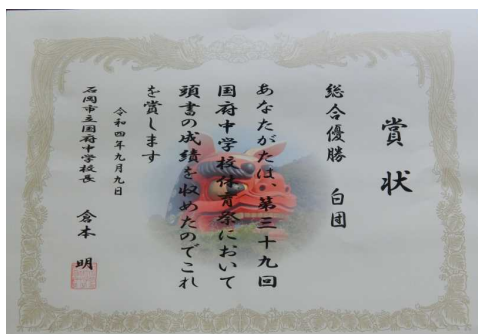 賞状
総合優勝　白団
あなたがたは、第三十九回
国府中学校体育祭において
頭書の成績を収めたのでこれ
を賞します
令和四年九月九日
石岡市立国府中学校長　倉本　明